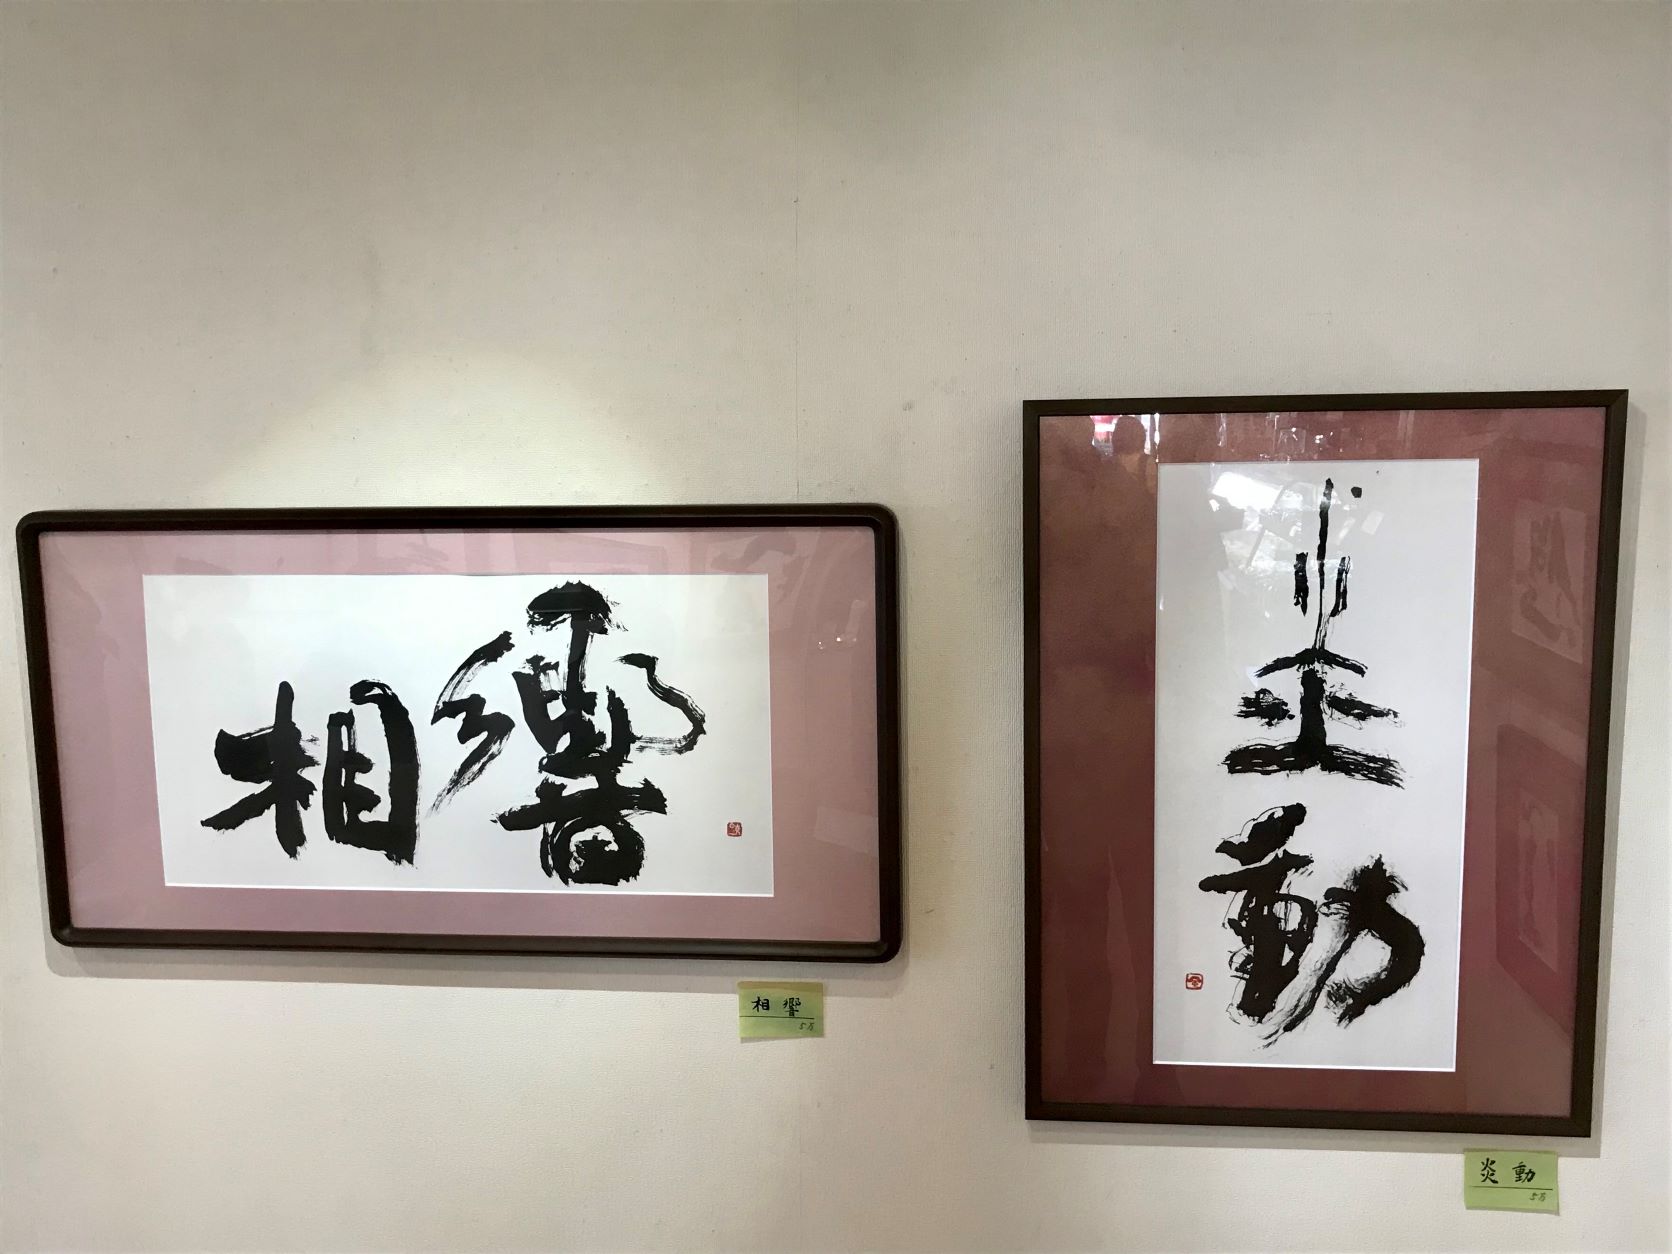 相響
相響
5万
炎動
炎動
5万